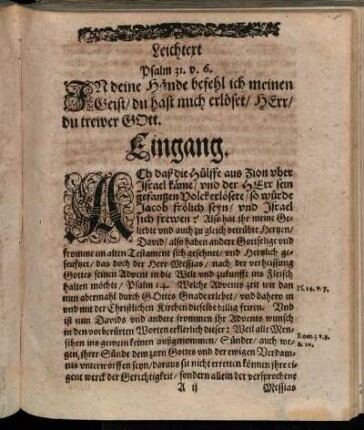 Leichtext
Psalm 31. v. 6.
IN deine Hände befehl ich meinen
Geist/ du hast mich erlöset/ HErr/
du trewer GOtt.
Eingang.
ACh daß die Hülffe aus Zion vber
Israel käme/ vnd der HErr sein
gefangen Volck erlösete/ so würde
Jacob frölich seyn/ vnd Israel
sich frewen? Also hat jhr meine Ge-
liebte vnd auch zu gleich betrübte Hertzen/
David/ also haben andere Gottselige vnd
fromme im alten Testament sich gesehnet/ vnd Hertzlich ge-
seuffzet/ das doch der Herr Messias/ nach der verheissung
Gottes seinen Advent in die Welt vnd zukunfft ins Fleisch
halten möcht/ Psalm 14. Welche Advents zeit wir dan
nun abermahl durch GOttes Gnade erlebt/ vnd dahero in
vnd mit der Christlichen Kirchen dieselbe billig feiren. Vnd
ist nun Davids vnd andere frommen jhr Advents wunsch
in den vorberürten Worten erklerlich dieser: Weil alle Men-
schen ins gemein keinen außgenommen/ Sünder/ auch we-
gen jhrer Sünde dem zorn Gottes vnd der ewigen Verdam-
nis vnterworffen seyn/ daraus sie nicht erretten können jhre ei-
gent werck der Gerechtigkeit/ sondern allein der versprochene
Ps. 14. v. 7.
Rom. 3. v. 9.
& 20.
A ij
Messias